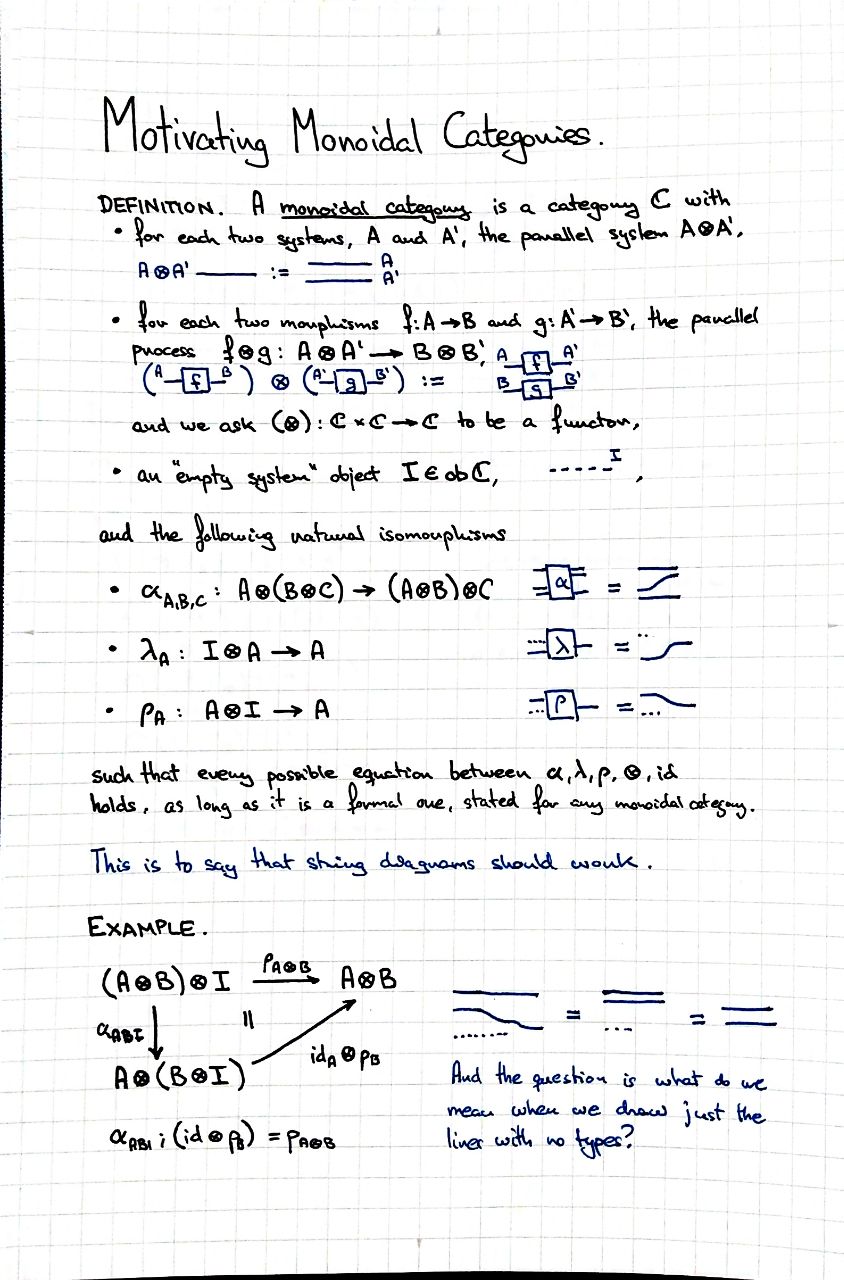 Motivating Monoidal Categories.
DEFINITION. A monoidal category is a category ℂ with
• for each two systems, A and A', the parallel system A⊗A',
A⊗A' ——— := A
A'
• for each two morphisms f: A→B and g: A'→B', the parallel
process f⊗g: A⊗A' → B⊗B',
(A f B) ⊗ (A' g B') := A f A'
B g B'
and we ask (⊗): ℂ×ℂ→ℂ to be a functor,
• an "empty system" object I∈obℂ, -----I,
and the following natural isomorphisms
• α_{A,B,C}: A⊗(B⊗C) → (A⊗B)⊗C α =
• λ_A: I⊗A → A λ =
• ρ_A: A⊗I → A ρ =
such that every possible equation between α, λ, ρ, ⊗, id
holds, as long as it is a formal one, stated for any monoidal category.
This is to say that string diagrams should work.
EXAMPLE.
(A⊗B)⊗I ρ_{A⊗B} → A⊗B
α_{ABI} ↓ = id_A⊗ρ_B
A⊗(B⊗I)
α_{ABI};(id⊗ρ_B) = ρ_{A⊗B}
= =
And the question is what do we
mean when we draw just the
lines with no types?